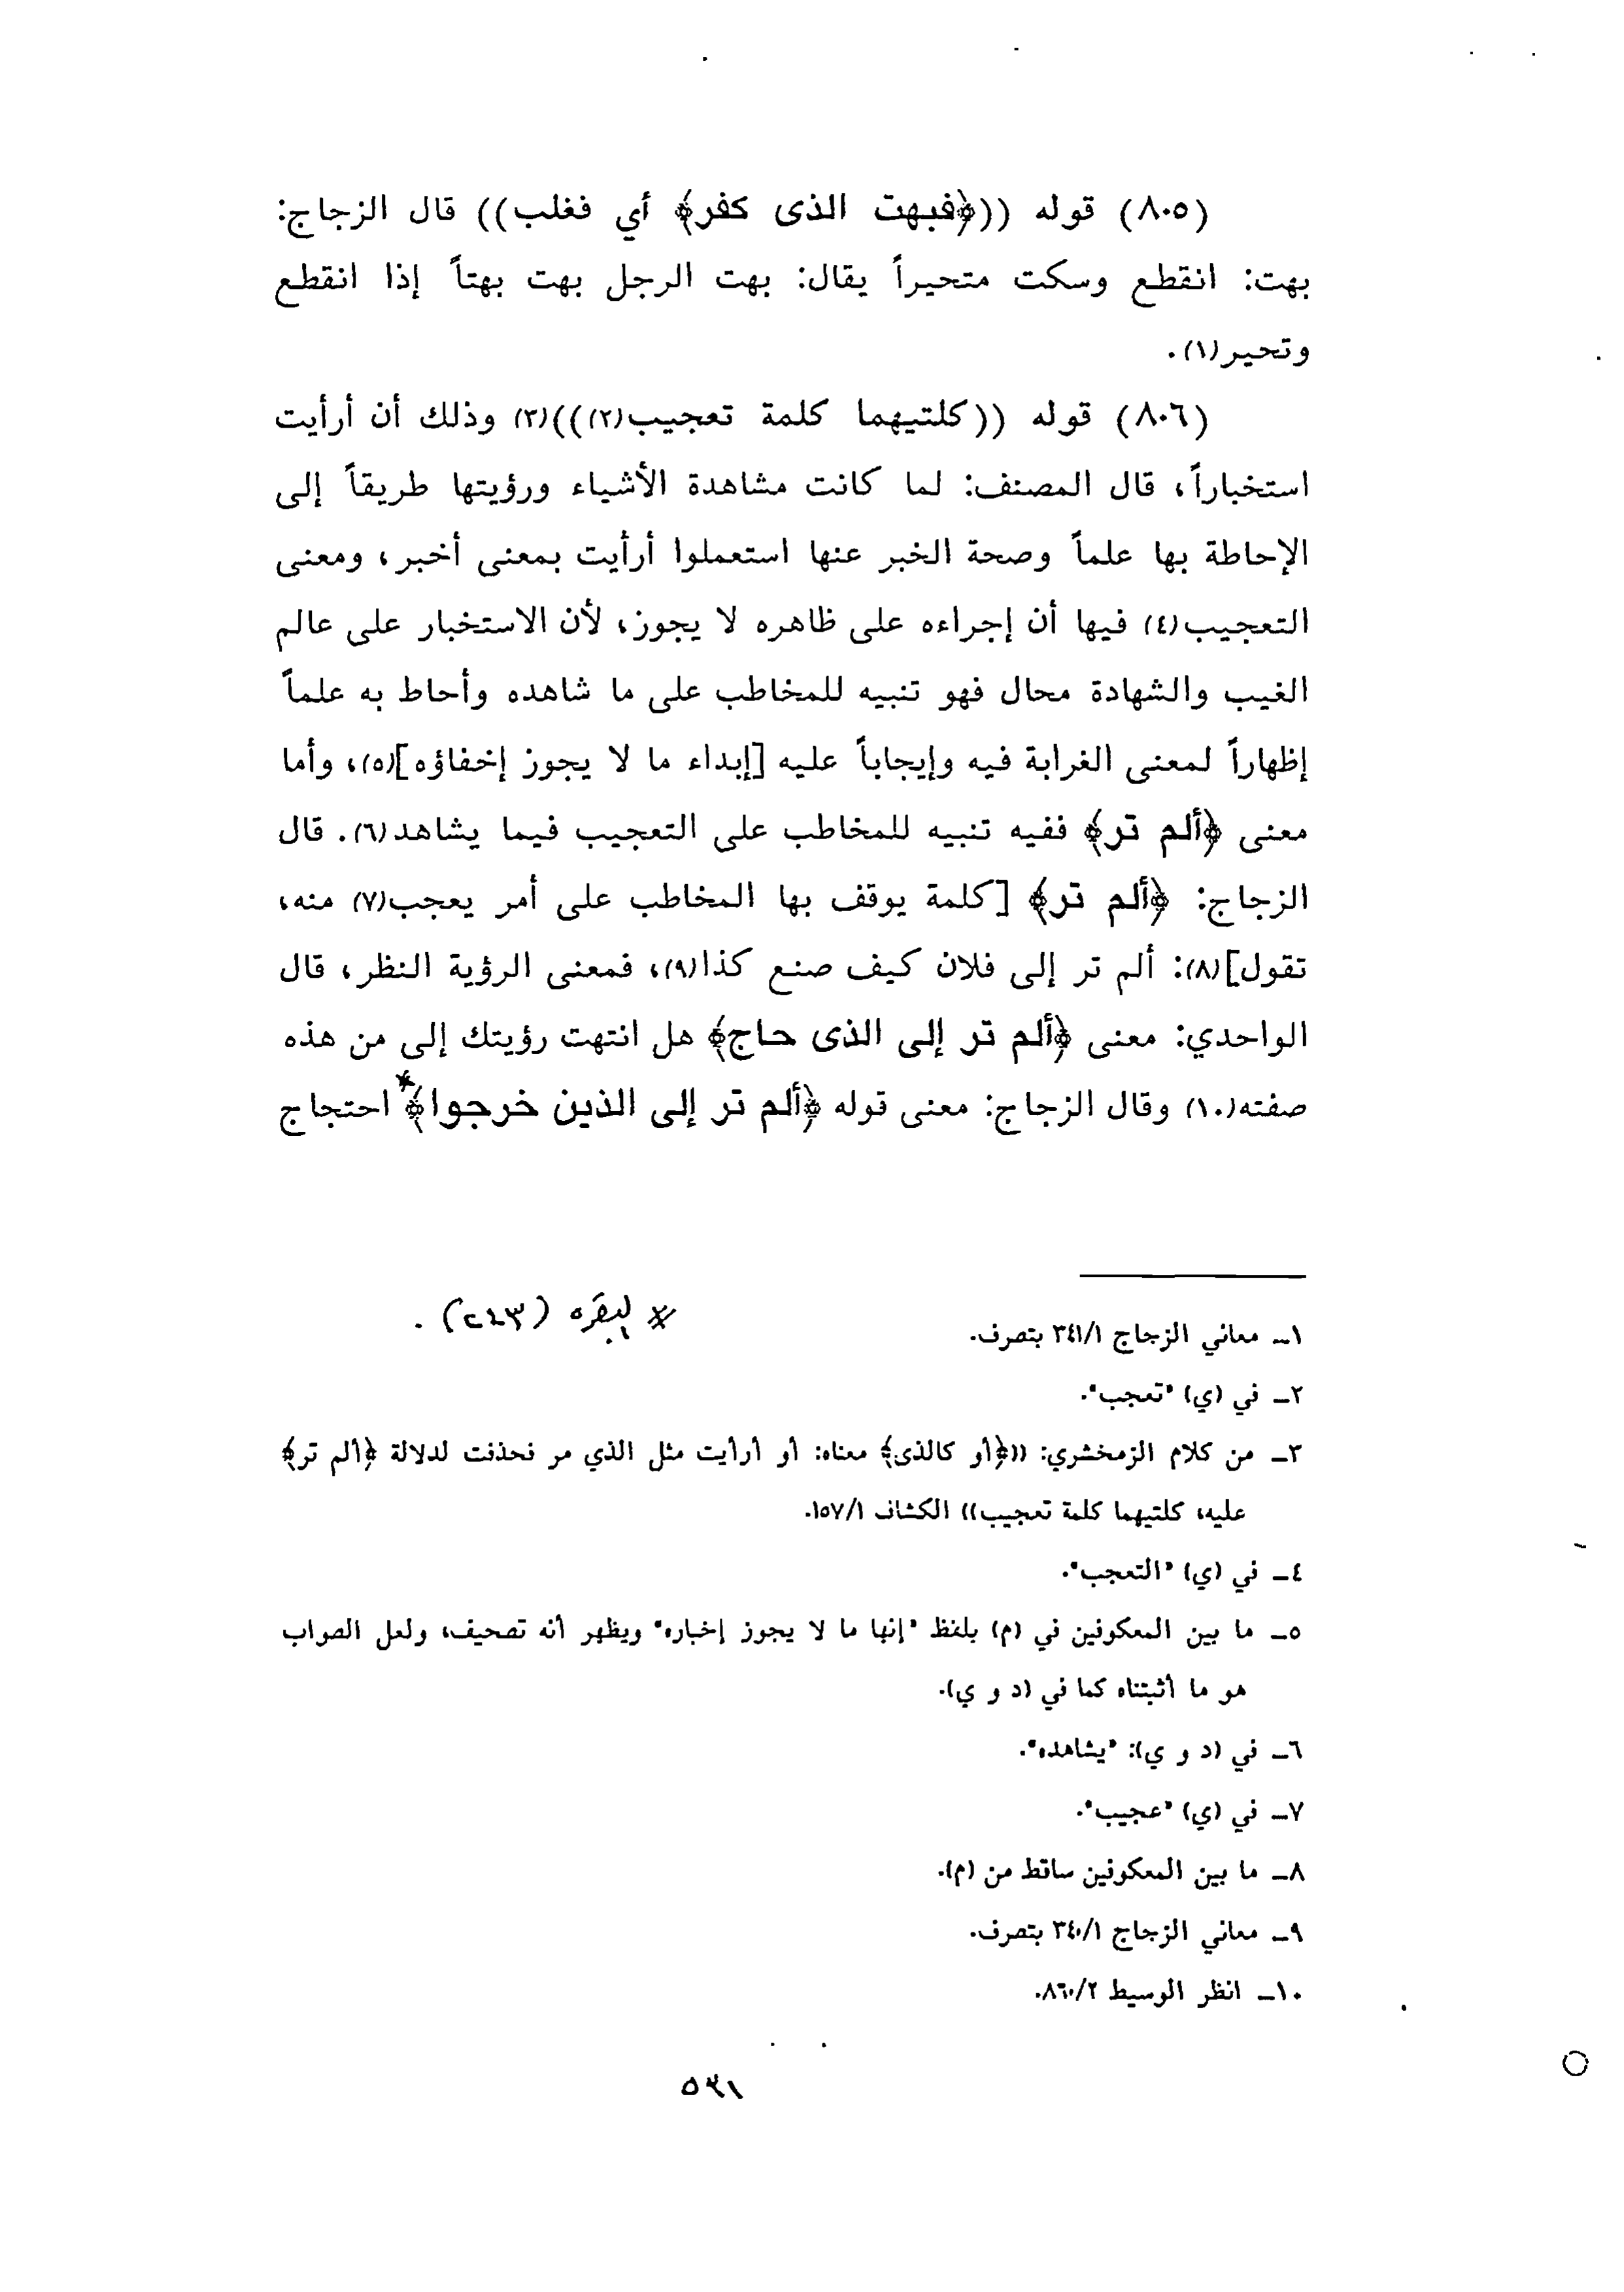 (٨٠٥) قوله ((﴿فبهت الذى كفر﴾ أي فغلب)) قال الزجاج:
بهت: انقطع وسكت متحيراً يقال: بهت الرجل بهت بهتاً إذا انقطع
وتحير(١).
(٨٠٦) قوله ((كلتيهما كلمة تعجيب(٢)))(٣) وذلك أن أرأيت
استخباراً، قال المصنف: لما كانت مشاهدة الأشياء ورؤيتها طريقاً إلى
الإحاطة بها علماً وصحة الخبر عنها استعملوا أرأيت بمعنى أخبر، ومعنى
التعجيب(٤) فيها أن إجراءه على ظاهره لا يجوز، لأن الاستخبار على عالم
الغيب والشهادة محال فهو تنبيه للمخاطب على ما شاهده وأحاط به علماً
إظهاراً لمعنى الغرابة فيه وإيجاباً عليه [إبداء ما لا يجوز إخفاؤه](٥)، وأما
معنى ﴿ألم تر﴾ ففيه تنبيه للمخاطب على التعجيب فيما يشاهد(٦). قال
الزجاج: ﴿ألم تر﴾ [كلمة يوقف بها المخاطب على أمر يعجب(٧) منه،
تقول](٨): ألم تر إلى فلان كيف صنع كذا(٩)، فمعنى الرؤية النظر، قال
الواحدي: معنى ﴿ألم تر إلى الذى حاج﴾ هل انتهت رؤيتك إلى من هذه
صفته(١٠) وقال الزجاج: معنى قوله ﴿ألم تر إلى الذين خرجوا﴾* احتجاج
* البقره (٢٤٣).
١ـ معاني الزجاج ٣٤١/١ بتصرف.
٢ـ في (ي) "تعجب".
٣ـ من كلام الزمخشري: ((﴿أو كالذى﴾ معناه: أو أرأيت مثل الذي مر فحذفت لدلالة ﴿ألم تر﴾
عليه، كلتيهما كلمة تعجيب)) الكشاف ١٥٧/١.
٤ـ في (ي) "التعجب".
٥ـ ما بين المعكوفين في (م) بلفظ "إنها ما لا يجوز إخباره" ويظهر أنه تصحيف، ولعل الصواب
هو ما أثبتناه كما في (د و ي).
٦ـ في (د و ي): "يشاهده".
٧ـ في (ي) "عجيب".
٨ـ ما بين المعكوفين ساقط من (م).
٩ـ معاني الزجاج ٣٤٠/١ بتصرف.
١٠ـ انظر الوسيط ٨٦٠/٢.
٥٣١